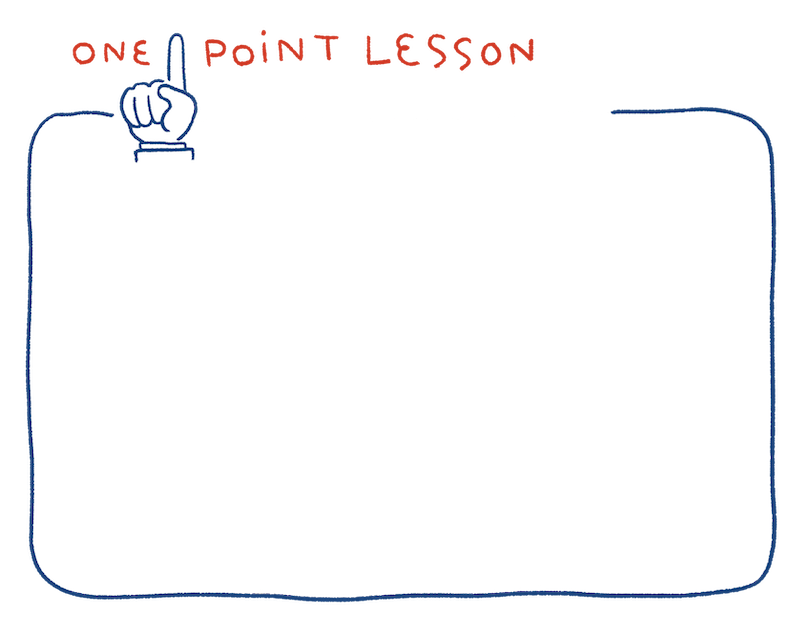 ONE POiNT LESSON